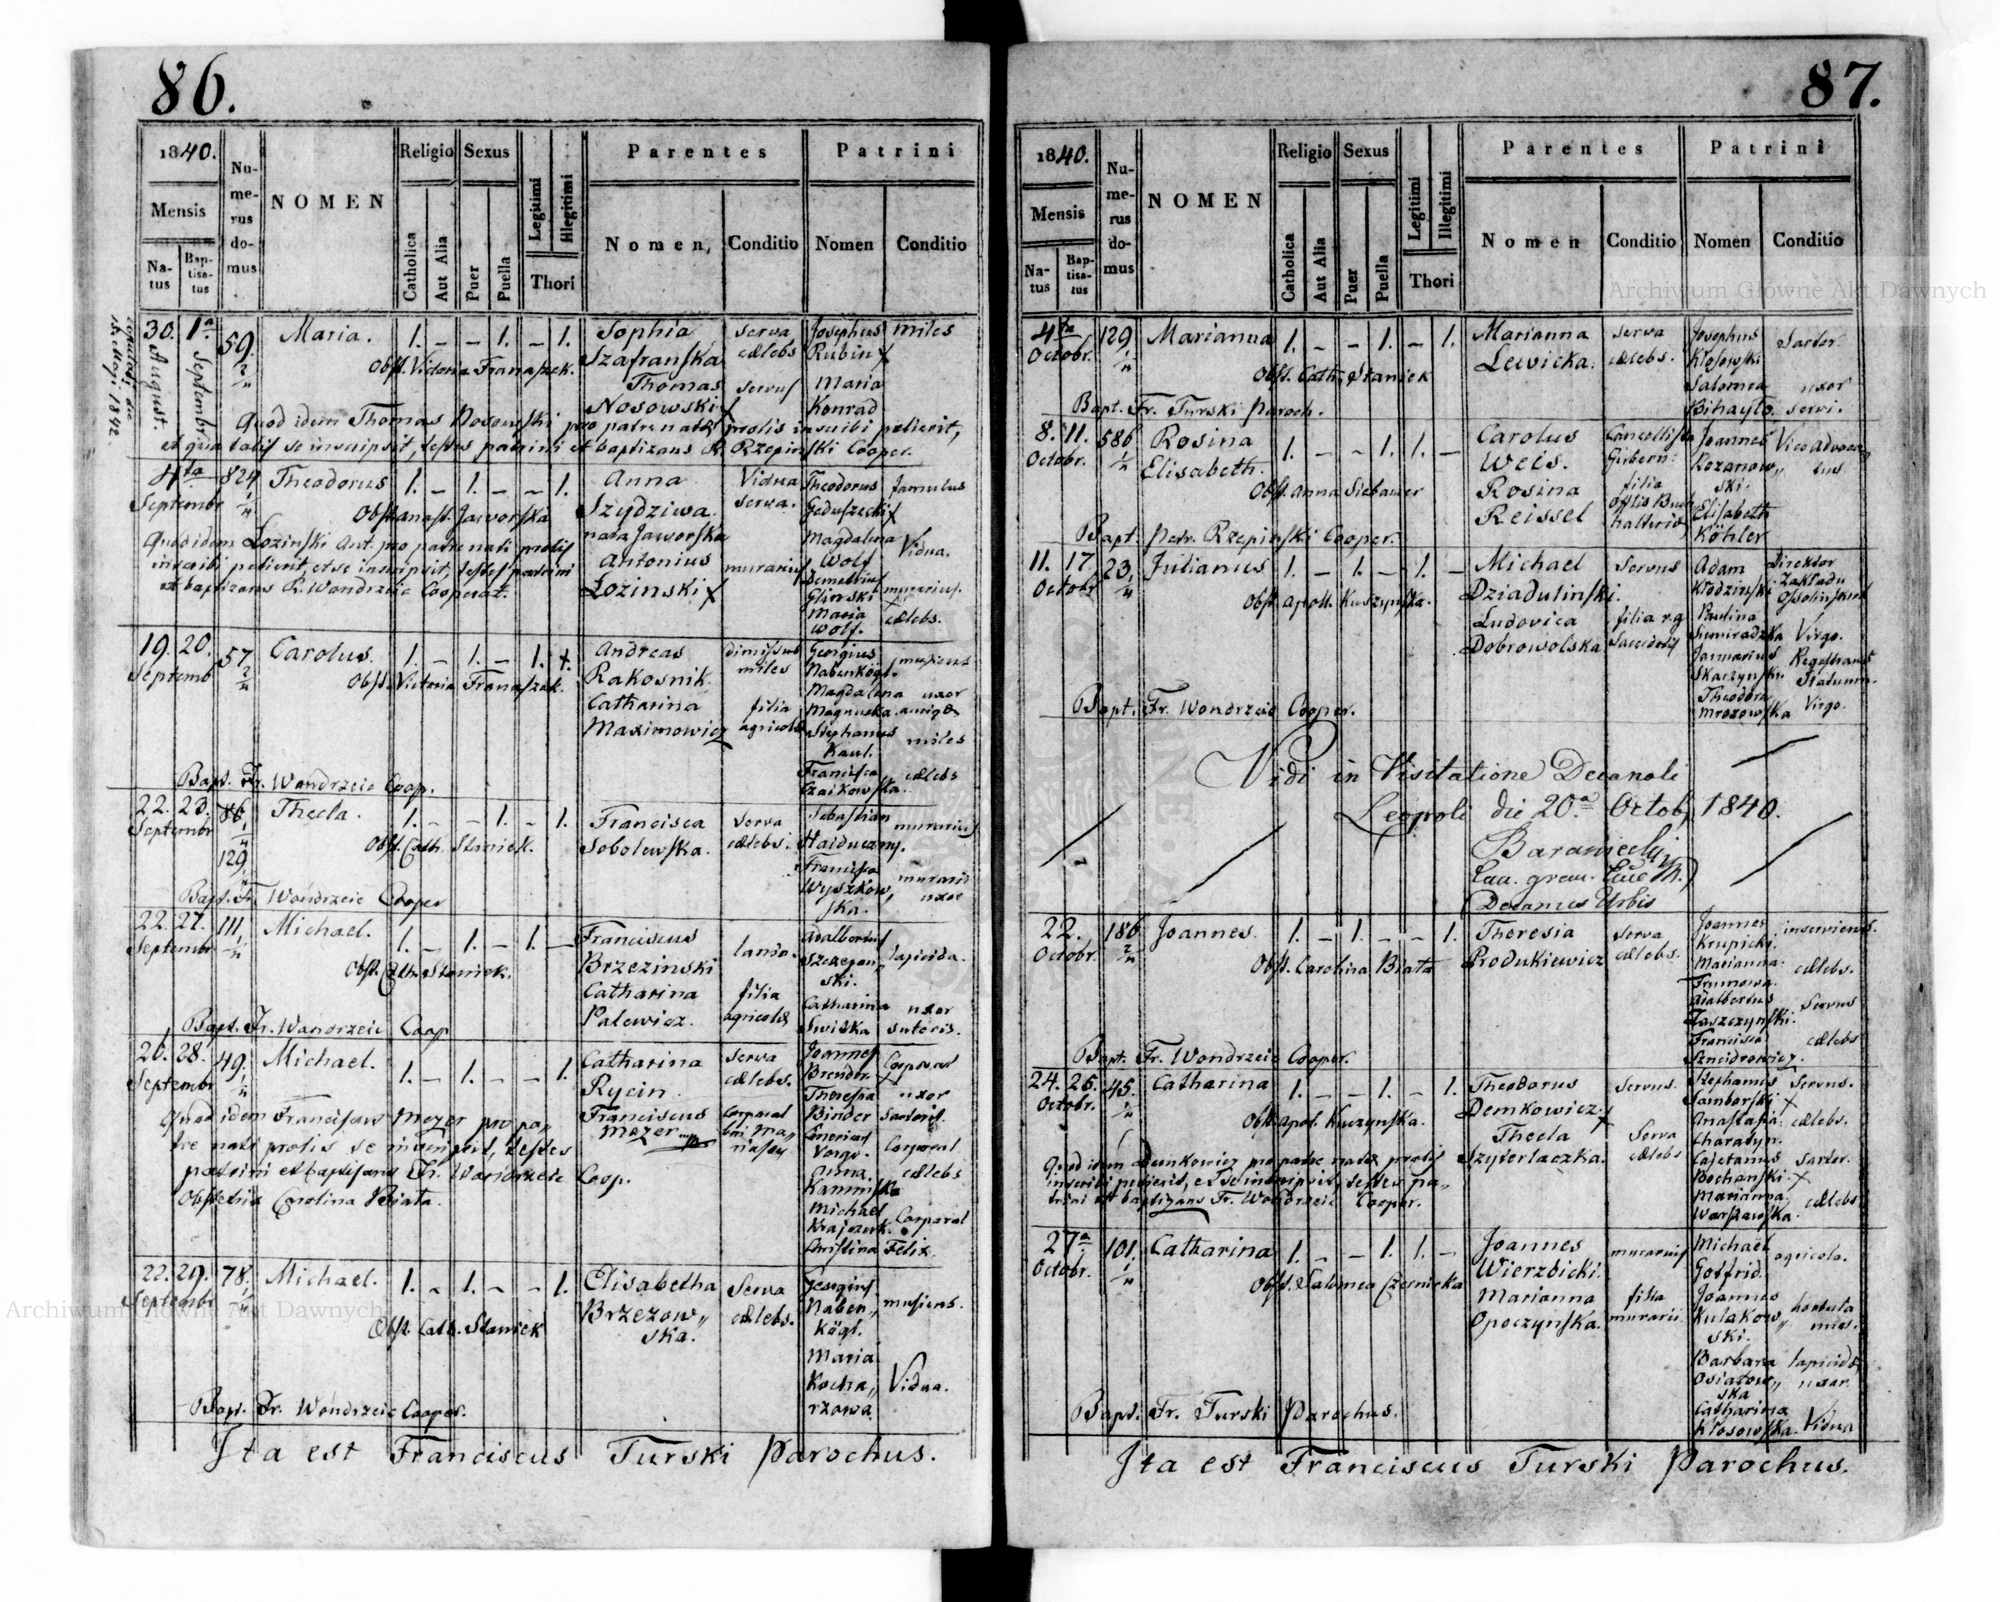 86.
1840.
Mensis
Na-
tus
Bap-
tisa-
tus
Nu-
me-
rus
do-
mus
NOMEN
Religio
Catholica
Aut Alia
Sexus
Puer
Puella
Legitimi
Illegitimi
Thori
Parentes
Nomen,
Conditio
Patrini
Nomen
Conditio
30. 1a 59. Maria. 1. – – 1. – 1. Sophia serva Josephus miles
August. Septembr. Szafrańska cælebs Rubin X
Obst. Victoria Franaszek.
Thomas servus Maria
Nosowski X Konrad
Quod idem Thomas Nosowski pro patre natæ prolis inscribi petierit,
et qua talis se inscripsit, testes patrini et baptizans R. Rzepinski Cooper.
4ta 824 Theodorus 1. – 1. – – 1. Anna Vidua Theodorus famulus
Septembr Szydziwa. serva. Geduszecki X
Obst. anast. Jaworska nata Jaworska Magdalena Vidua.
Quod idem Łozinski Ant. pro patre nati prolis Wolf
inscribi petierit, et se inscripsit, testes patrini Antonius murarius Demetrius murarius.
et baptizans R. Wondrzeic Cooperat. Łozinski X Glinski X
Maria cælebs.
Wolf.
19. 20. 57 Carolus. 1. – 1. – 1. Andreas dimissus Georgius musicus
Septemb Rakosnik. miles Nabenkögl.
Obst. Victoria Franaszek.
Catharina filia Magdalena uxor
Maximowicz agricolæ Magnuska aurigæ
Stephanus miles
Kaul.
Francisca cælebs
Czaikowska.
Bapt. Fr. Wondrzeic Coop.
22. 23. 86 Thecla. 1. – – 1. – 1. Francisca serva Sebastian murarius
Septembr 129 Sobolewska. cælebs. Haiduczny.
Obst. Cath. Staniek.
Francisca murarii
Wyszkow„ uxor
ska.
Bapt. Fr. Wondrzeic Cooper
22. 27. 111 Michael. 1. – 1. – 1. – Franciscus lanio. Adalbertus lapicida.
Septembr Brzezinski Szczepan„
Obst. Cath. Staniek. ski.
Catharina filia Catharina uxor
Palewicz. agricolæ Swiska sutoris.
Bapt. Fr. Wondrzeic Coop
26. 28. 49. Michael. 1. – 1. – – 1. Catharina serva Joannes Corporal
Septembr Rycin. cælebs. Brendor.
Theresia uxor
Quod idem Franciscus Mezer pro pa„ Franciscus Corporal Binder
tre nati prolis se inscripsit, testes Mezer Corporal
patrini et baptisans Fr. Wondrzeic Coop. Anna cælebs
Obstetrix Carolina Biała. Kaminska
Michael Corporal
Krajczuk.
Christina Felix.
22. 29. 78. Michael. 1. – 1. – – 1. Elisabetha Serva Georgius musicus.
Septembr Brzezow„ cælebs. Naben„
ska. kögl.
Obst. Cath. Staniek
Maria Vidua.
Kocha„
rzowa.
Bapt. Fr. Wondrzeic Cooper.
Ita est Franciscus Turski Parochus.
copulati die
1842
87.
1840.
Mensis
Na-
tus
Bap-
tisa-
tus
Nu-
me-
rus
do-
mus
NOMEN
Religio
Catholica
Aut Alia
Sexus
Puer
Puella
Legitimi
Illegitimi
Thori
Parentes
Nomen
Conditio
Patrini
Nomen
Conditio
4ta 129 Marianna 1. – – 1. – 1. Marianna serva Josephus Sartor.
Octobr. Lewicka. cælebs. Kłosowski
Obst. Cath. Staniek
Salomea uxor
Bapt. Fr. Turski Paroch. Bihayło servi.
8. 11. 586 Rosina 1. – – 1. 1. – Carolus Cancellista Joannes Viceadvoca„
Octobr. Elisabeth. Weis. Gubern: Rozanow„ tus
ski.
Obst. Anna Siebauer Rosina filia
Reissel Offlis Buch Elisabeth
halterid Köhler
Bapt. Petr. Rzepinski Cooper.
11. 17. 23 Julianus 1. – 1. – 1. – Michael Servus Adam Direktor
Octobr Dziadulinski. Kłodzinski Zakładu
Obst. Apoll. Kuszynska. Ossolinskich
Ludovica filia r. g. Paulina Virgo.
Dobrowolska Sacerdotis Siemiradzka
Januarius Registrans
Skarzynski Statuum.
Theodora Virgo.
Mrozowska
Bapt. Fr. Wondrzeic Cooper.
Vidi in Visitatione Decanali
Leopoli die 20a Octob. 1840.
Decanus Urbis
22. 186 Joannes. 1. – 1. – – 1. Theresia serva Joannes inserviens.
Octobr. Produkiewicz cælebs. Krupicki.
Obst. Carolina Biała Marianna cælebs.
Adalbertus Servus
Zaszczynski.
Francisca cælebs
Szncidrowicz.
Bapt. Fr. Wondrzeic Cooper.
24. 25. 45. Catharina 1. – – 1. – 1. Theodorus Servus. Stephanus Servus.
Octobr. Demkowicz X Samborski X
Obst. Apol. Kuczynska. Anastasia cælebs.
Thecla Serva Charatyn.
Szyterlaczka. cælebs Cajetanus Sartor.
Quod idem Demkowicz pro patre natæ prolis Bochanski. X
inscribi petierit, et se inscripsit, testes pa„ Marianna cælebs
trini et baptizans Fr. Wondrzeic Cooper. Warszawska.
27a 101. Catharina 1. – – 1. 1. – Joannes murarius Michael agricola.
Octobr. Wierzbicki. Gotfrid.
Obst. Salomea Czernicka
Marianna filia Joannes hortula
Opoczynska. murarii Kulakow„ nus.
ski.
Barbara lapicidæ
Osiatow„ uxor
ska
Catharina Vidua
Kłosowska.
Bapt. Fr. Turski Parochus.
Ita est Franciscus Turski Parochus.
Archiwum Główne Akt Dawnych
Archiwum Główne Akt Dawnych